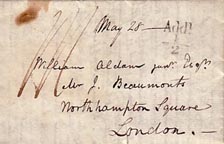 May 28
Add!
2
William Aldam junr. Esqr.
Mr J. Beaumonts
Northampton Square
London. —